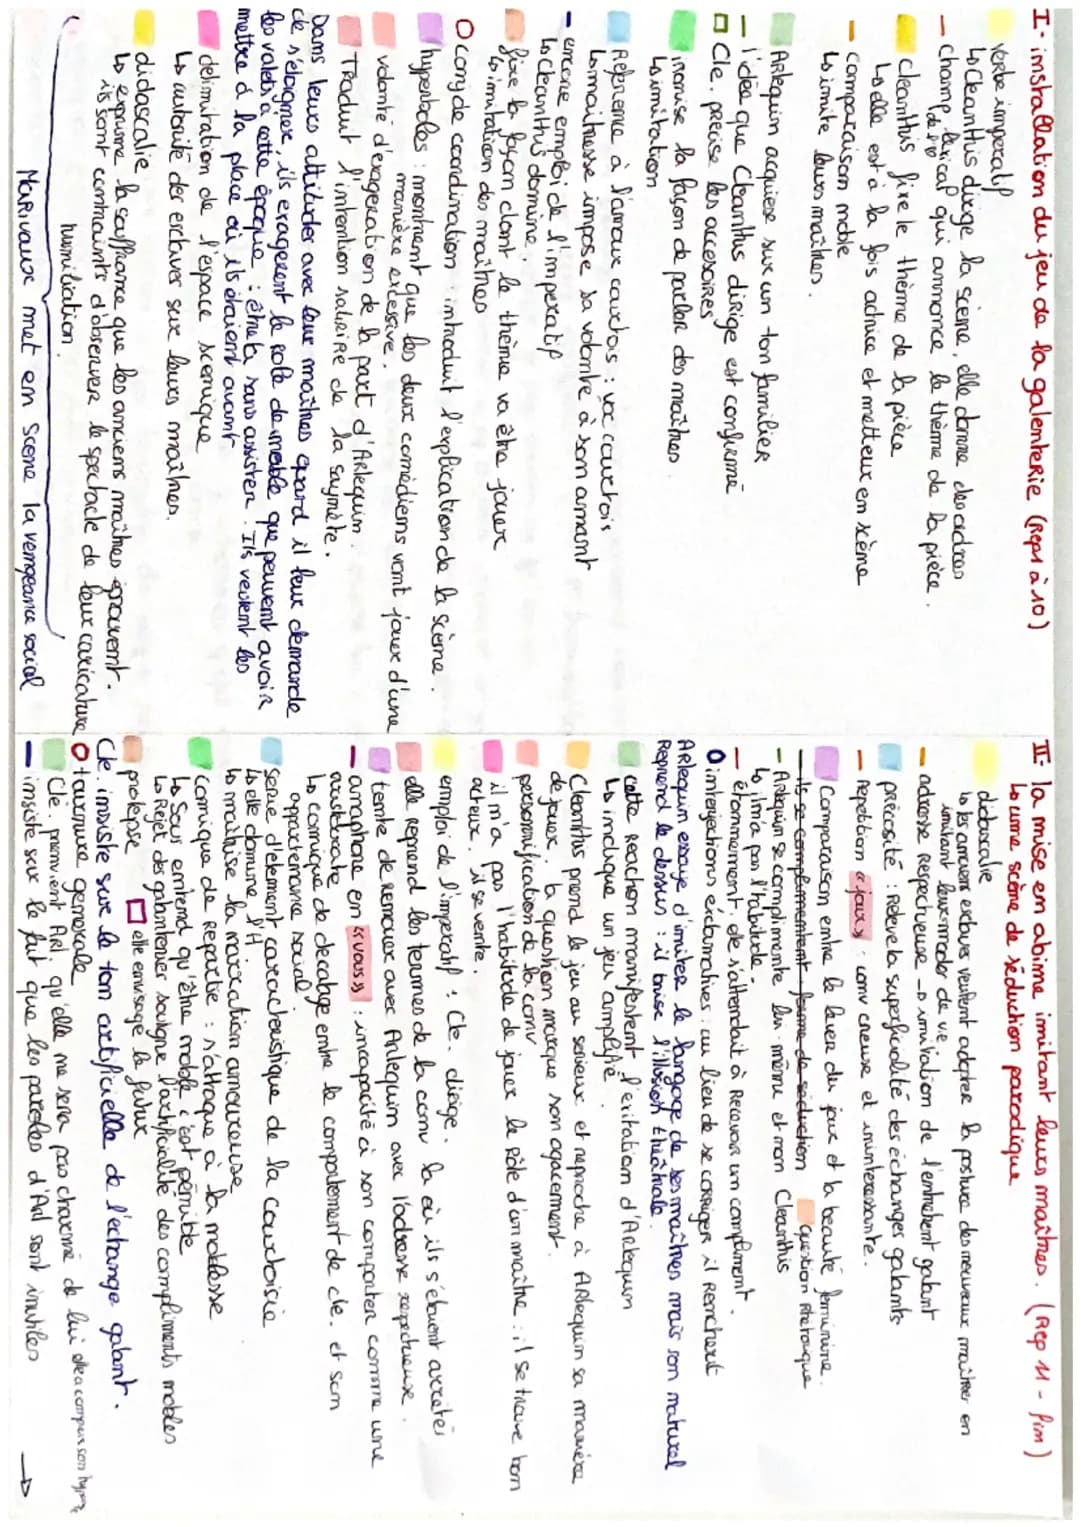 I- installation du jeu de la galenterie (Reps à 10)
verbe imperatif
↳ Cleanthis dirige la scène, elle donne des ordres
champ lexical qui annonce le thème de la pièce.
Cleanthis fixe le thème de la pièce
↳ elle est à la fois actrice et metteur en scène
comparaison noble
↳ imite leurs maîtres.
Arlequin acquièse sur un ton familier
l'idée que Cleanthis dirige est confirmé
Cle. précise les accesoires
ironise la façon de parler des maîtres.
↳ imitation
Référence à l'amour courtois : voc courtois
↳ maîtresse impose sa volonté à son amant
encore emploi de l'imperatif
↳ Cleanthis domine
fixe la façon dont le thème va être jouer
↳ imitation des maîtres
conj de coordination : introduit l'explication de la scène.
hyperboles : montrent que les deux comédiens vont jouer d'une
manière excessive.
volonté d'exageration de la part d'Arlequin.
Traduit l'intention satirique de la saynète.
Dans leurs attitudes avec leur maîtres quand il leur demande
de s'éloigner, ils exagerent le rôle de noble que peuvent avoir
les valets à cette époque : être là sans assister. Ils veulent les
mettre à la place où ils étaient avant
délimitation de l'espace scénique
↳ autorité des esclaves sur leurs maîtres.
didascalie
↳ exprime la souffrance que les anciens maîtres éprouvent.
ils sont contraints d'observer le spectacle de leur caricature
humiliation.
Marivaux met en scène la vengeance social
II- la mise en abime imitant leurs maîtres. (Rep 11 - fin)
↳ une scène de séduction parodique
didascalie
↳ les anciens esclaves veulent adopter la posture des nouveaux maîtres en
imitant leurs modes de vie
adresse respectueuse → imitation de l'entretient galant
préciosité : Relève la superficialité des échanges galants
repetition « jours » : conv creuse et ininteressante.
Comparaison entre le lever du jour et la beauté féminine.
ils se complimentent forme de séduction
question Rhétorique
Arlequin se complimente lui-même et non Cleanthis
↳ il n'a pas l'habitude
étonnement, elle s'attendait à Recevoir un compliment.
interjections exclamatives : au lieu de se corriger il Renchérit
Arlequin essaye d'imiter le langage de ses maîtres mais son naturel
Reprend le dessus : il brise l'illusion théâtrale.
Cette réaction manifestent l'exitation d'Arlequin
↳ indique un jeu amplifié.
Cleanthis prend le jeu au serieux et reproche à Arlequin sa manière
de jouer. la question marque son agacement.
personnification de la conv
il n'a pas l'habitude de jouer le rôle d'un maître : il se trouve bon
acteur. il se vente.
emploi de l'imperatif : Cle. dirige.
elle reprend les termes de la conv là où ils s'étaient arretés
tente de renouer avec Arlequin avec l'adresse respectueuse.
anaphore en « vous » : incapacité à son comporter comme une
aristocrate
↳ comique de decalage entre le comportement de cle. et son
appartenance social
serie d'élement caracteristique de la courtoisie
↳ elle domine l'A.
↳ maîtrise la narration amoureuse
comique de repartie : s'attaque à la noblesse
↳ Sous entend qu'être noble c'est pénible
↳ Rejet des galanteries souligne l'artificialité des compliments nobles
prolepse
elle envisage le futur
Cle. insiste sur le ton artificielle de l'échange galant.
tournure generale
Cle. previent Arl. qu'elle ne sera pas charmé de lui
insiste sur le fait que les paroles d'Arl sont inutiles
→